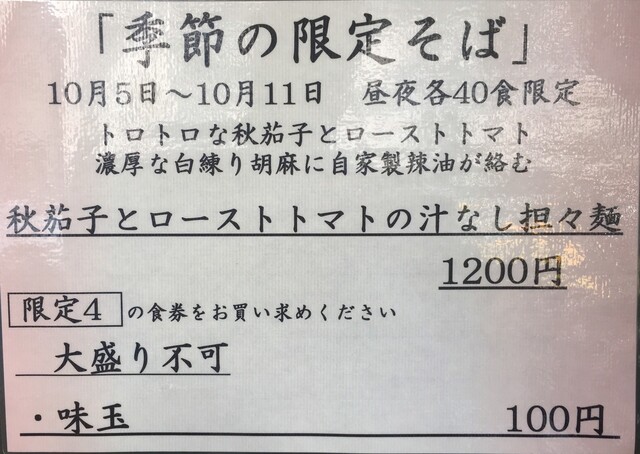 「季節の限定そば」
10月5日～10月11日　昼夜各40食限定
トロトロな秋茄子とローストトマト
濃厚な白練り胡麻に自家製辣油が絡む
秋茄子とローストトマトの汁なし担々麺
1200円
限定4 の食券をお買い求めください
大盛り不可
・味玉　100円